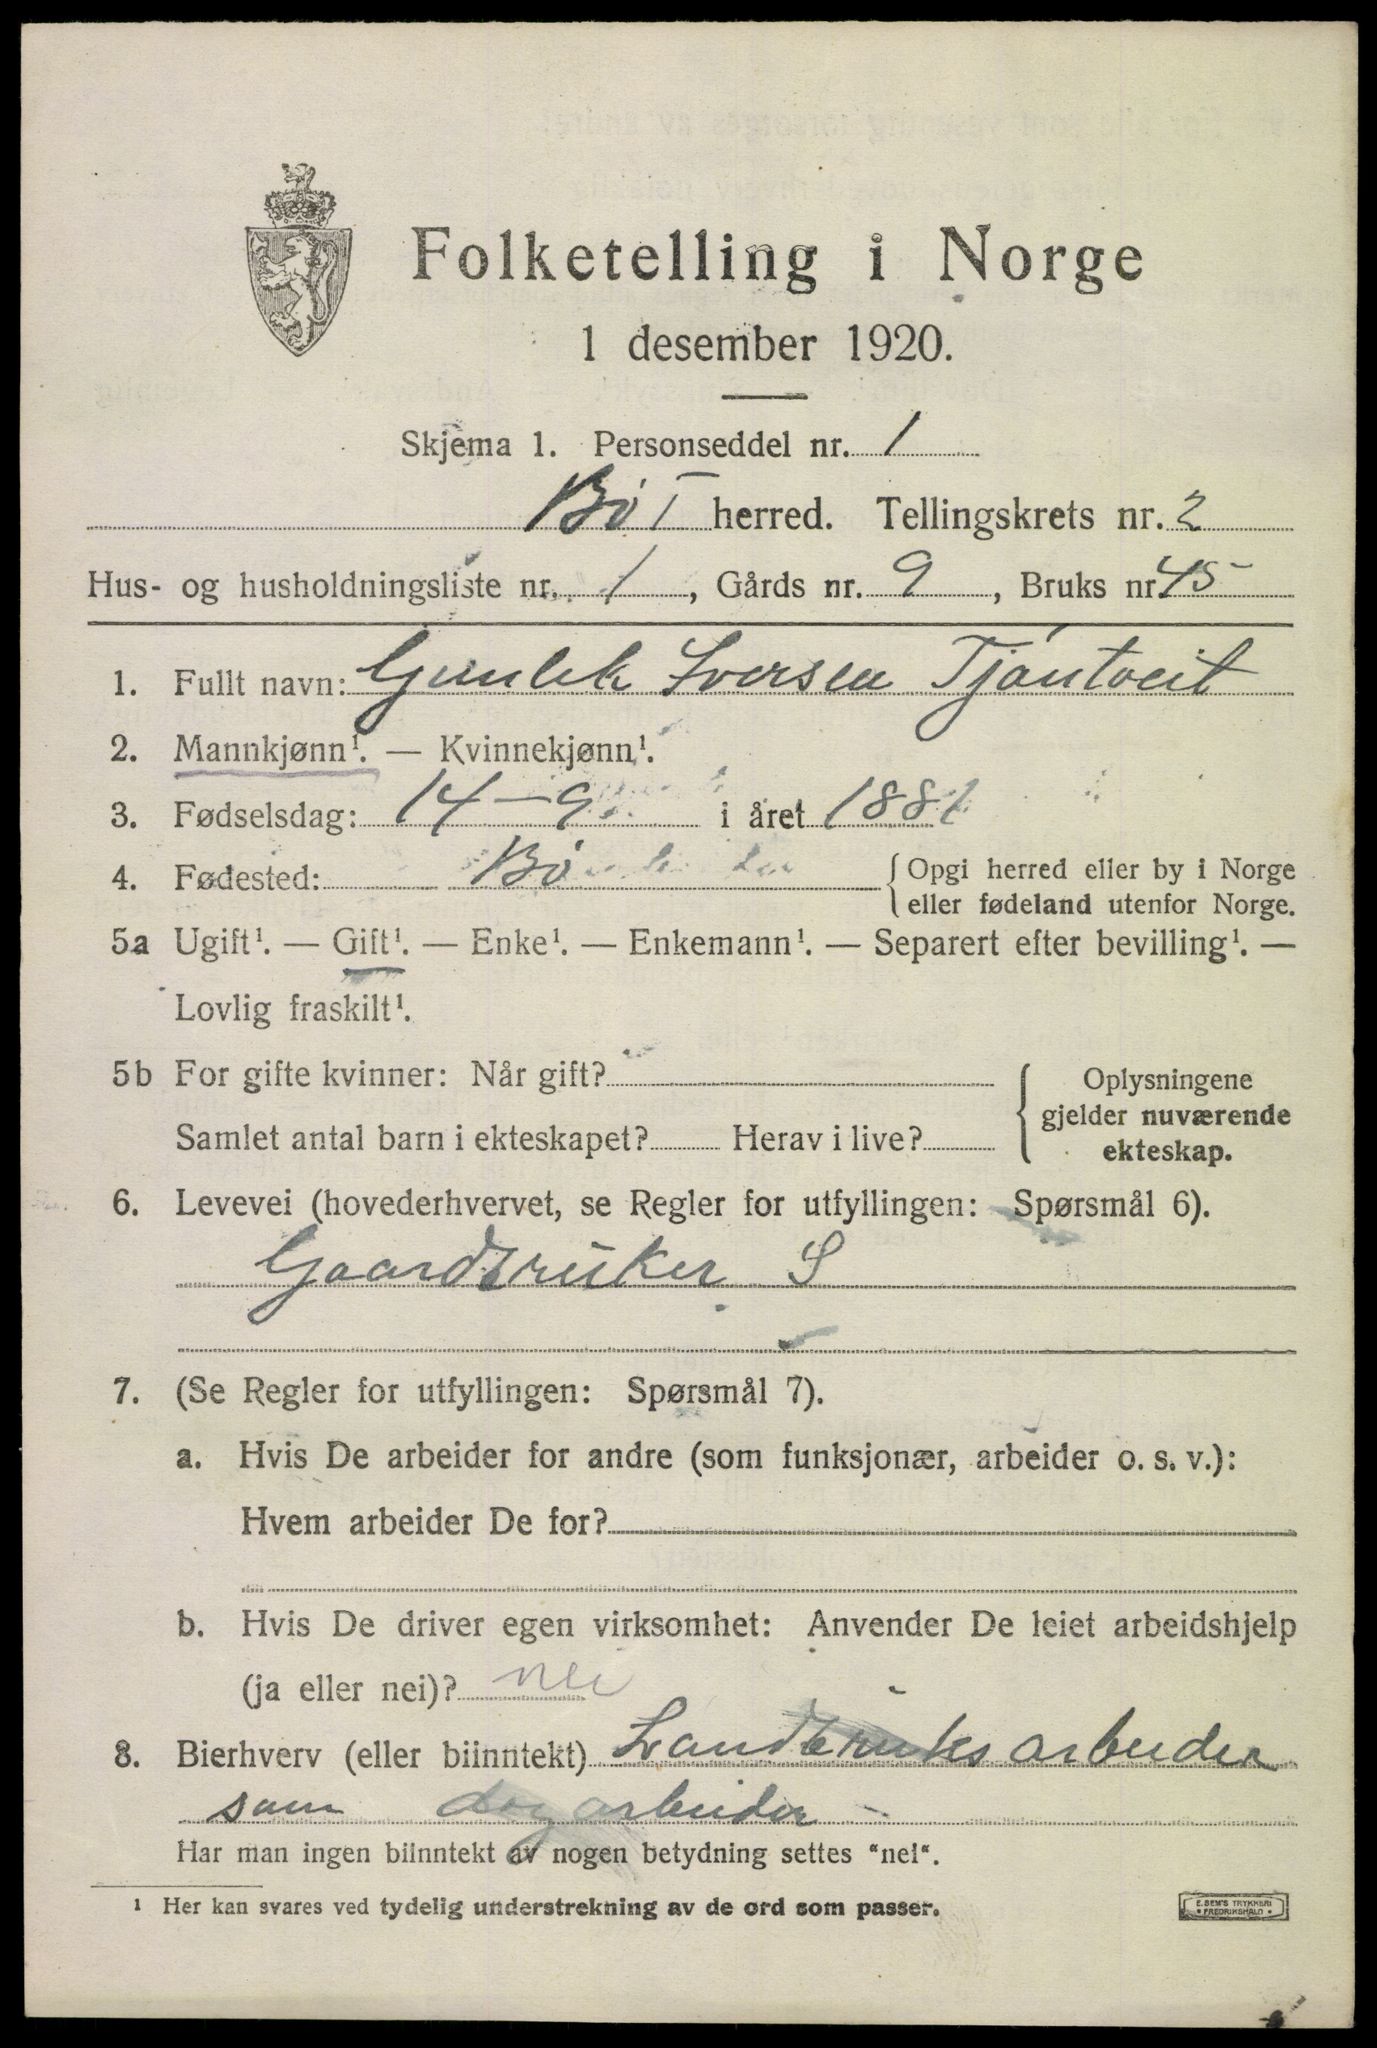 Folketelling i Norge
1 desember 1920.
Skjema 1. Personseddel nr. 1
Bø T herred. Tellingskrets nr. 2
Hus- og husholdningsliste nr. 1, Gårds nr. 9, Bruks nr. 45
1. Fullt navn: Gunlek Iversen Tjøntveit
2. Mannkjønn¹. — Kvinnekjønn¹.
3. Fødselsdag: 14-9 i året 1881
4. Fødested: Bø {Opgi herred eller by i Norge
eller fødeland utenfor Norge.
5a Ugift¹. — Gift¹. — Enke¹. — Enkemann¹. — Separert efter bevilling¹. —
Lovlig fraskilt¹.
5b For gifte kvinner: Når gift? {Oplysningene
gjelder nuværende
Samlet antal barn i ekteskapet? Herav i live?
ekteskap.
6. Levevei (hovederhvervet, se Regler for utfyllingen: Spørsmål 6).
Gaardbruker S
7. (Se Regler for utfyllingen: Spørsmål 7).
a. Hvis De arbeider for andre (som funksjonær, arbeider o. s. v.):
Hvem arbeider De for?
b. Hvis De driver egen virksomhet: Anvender De leiet arbeidshjelp
(ja eller nei)? nei
8. Bierhverv (eller biinntekt) Landbruks arbeider
som dagarbeider
Har man ingen biinntekt av nogen betydning settes "nei".
¹ Her kan svares ved tydelig understrekning av de ord som passer.
E. SEM'S TRYKKERI
FREDRIKSHALD